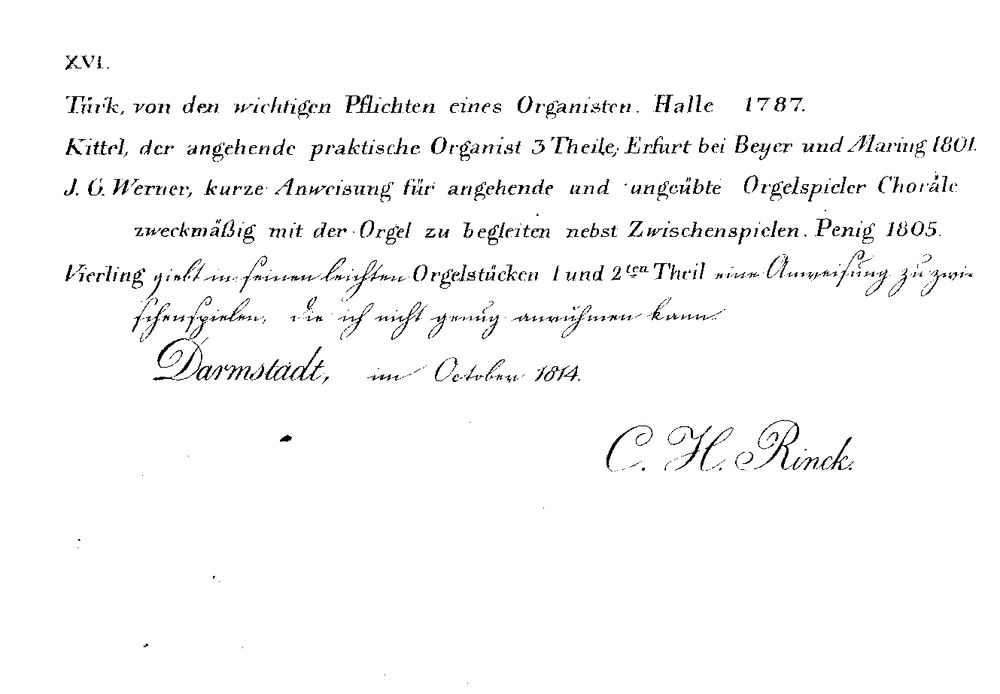 XVI.
Türk, von den wichtigen Pflichten eines Organisten. Halle 1787.
Kittel, der angehende praktische Organist 3 Theile, Erfurt bei Beyer und Maring 1801.
J. G. Werner, kurze Anweisung für angehende und ungeübte Orgelspieler Choräle
zweckmäßig mit der Orgel zu begleiten nebst Zwischenspielen. Penig 1805.
Vierling giebt in seinen leichten Orgelstücken 1 und 2ten Theil eine Anweisung zu zwi-
schenspielen, die ich nicht genug anrühmen kann.
Darmstadt, im October 1814.
C. H. Rinck.